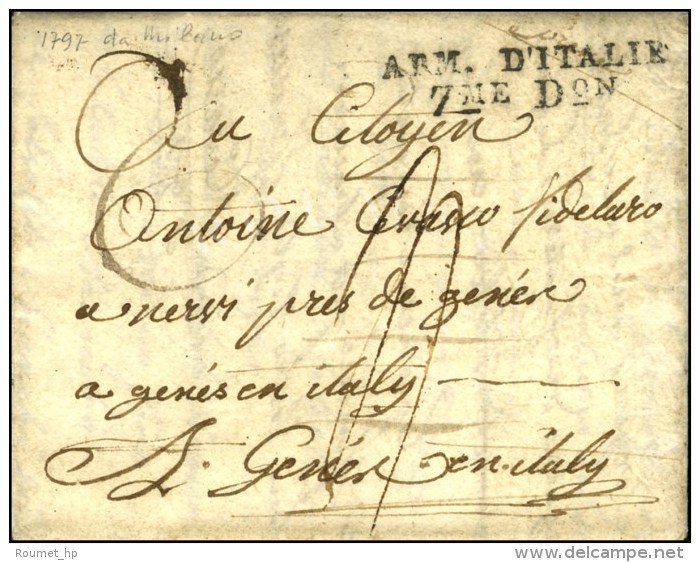 1797 da Milano
ARM. D'ITALIE
7ME DON
Au Citoyen
Antoine Crasso fidelaro
a nervi pres de genés
a genés en italy
A. Genés en italy
Roumet_hp
www.delcampe.net